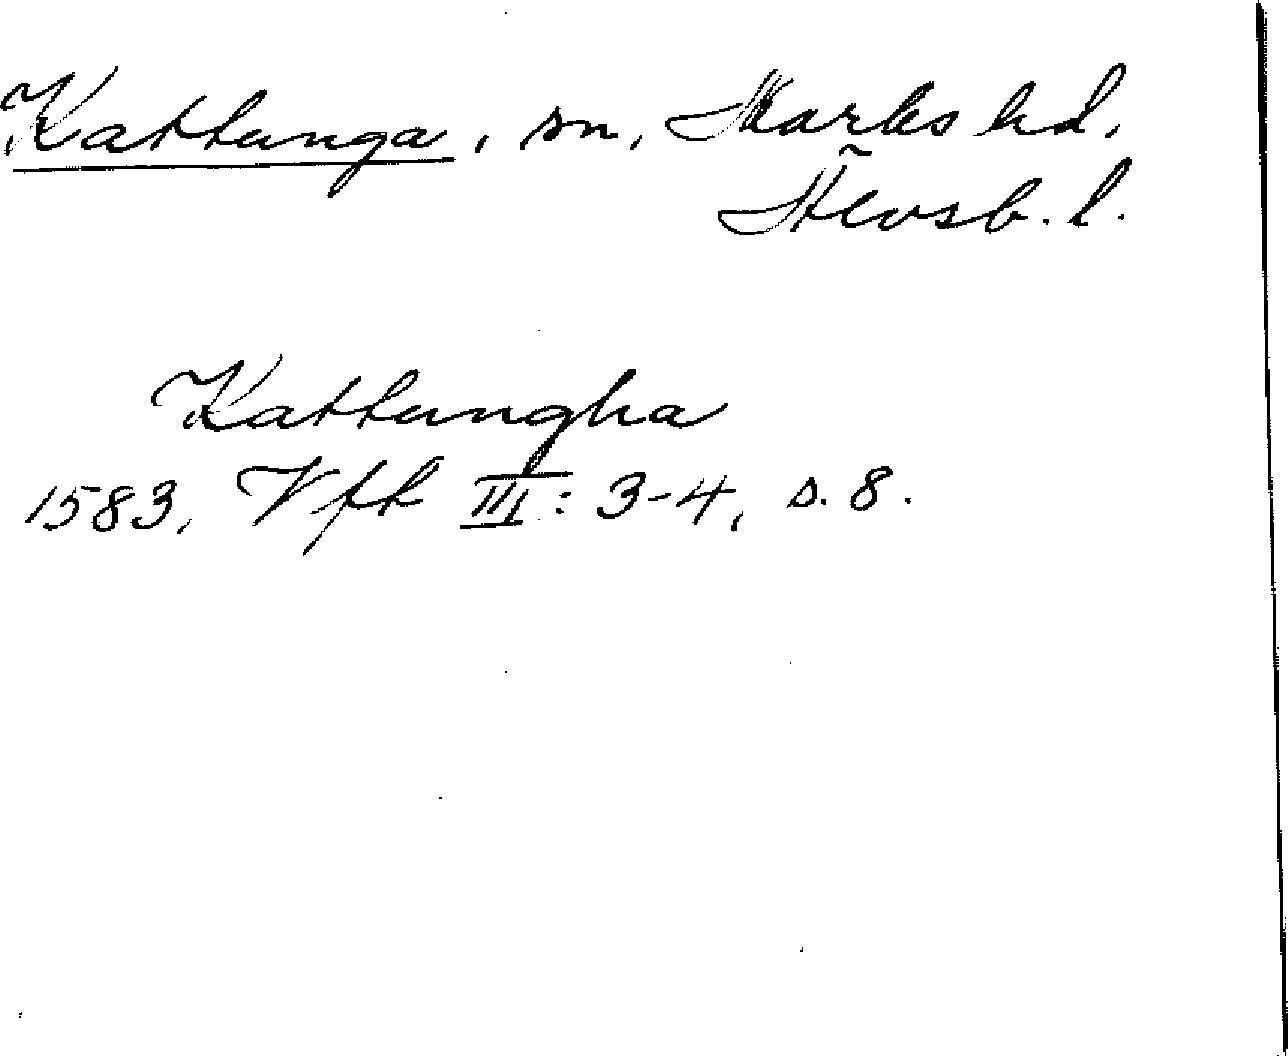 Kattunga, sn, Marks hd,
Älvsb. l.
Kattungha
1583, Vft III: 3-4, s. 8.